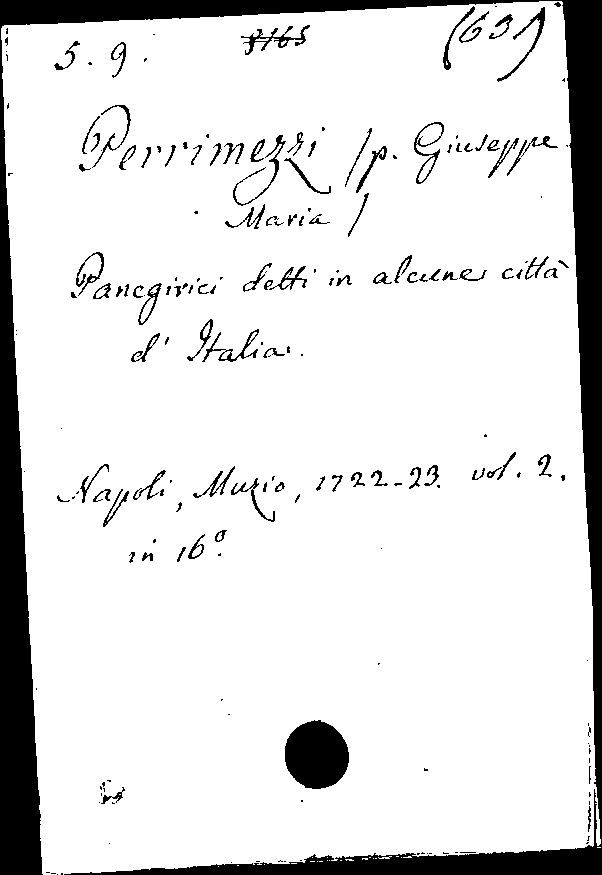 5. 9. 8165 (631)
Perrimezzi /p. Giuseppe
Maria/
Panegirici detti in alcune città
d' Italia.
Napoli, Muzio, 1722-23. vol. 2.
in 16°.